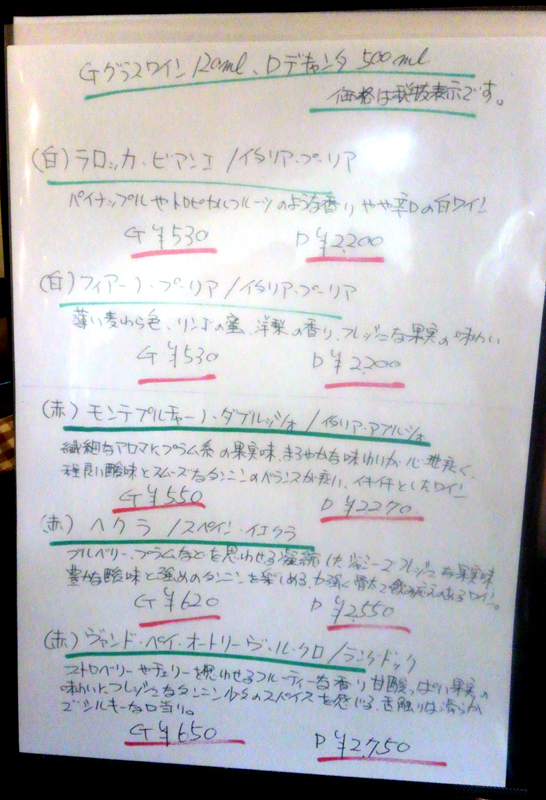 Gグラスワイン120ml、Dデキャンタ500ml
価格は税抜表示です。
(白)ラロッカ・ビアンコ/イタリア・プーリア
パイナップルやトロピカルフルーツのような香りやや辛口の白ワイン
G¥530 D¥2,200
(白)フィアーノ・プーリア/イタリア・プーリア
薄い麦わら色、リンゴの蜜、洋梨の香り、フレッシュな果実の味わい
G¥530 D¥2,200
(赤)モンテプルチャーノ・ダブルッツォ/イタリア・アブルッツォ
繊細なアロマとプラム系の果実味、まろやかな味わいが心地良く、
程良い酸味とスムーズなタンニンのバランスが良い、イキイキとしたワイン
G¥550 D¥2270
(赤)ヘクラ/スペイン・イエクラ
ブルベリー、プラムなどを思わせる凝縮したジューシーでフレッシュな果実味
豊かな酸味と強めのタンニンを楽しめる力強く骨太で飲み応えあるワイン。
G¥620 D¥2,550
(赤)ヴァンド・ペイ・オートリーヴ・ル・クロ/ラングドック
ストロベリーやチェリーを思わせるフルーティーな香り甘酸っぱい果実の
味わいとフレッシュなタンニン少々のスパイスを感じる、舌触りは滑らか
でシルキーな口当り。
G¥650 D¥2,750